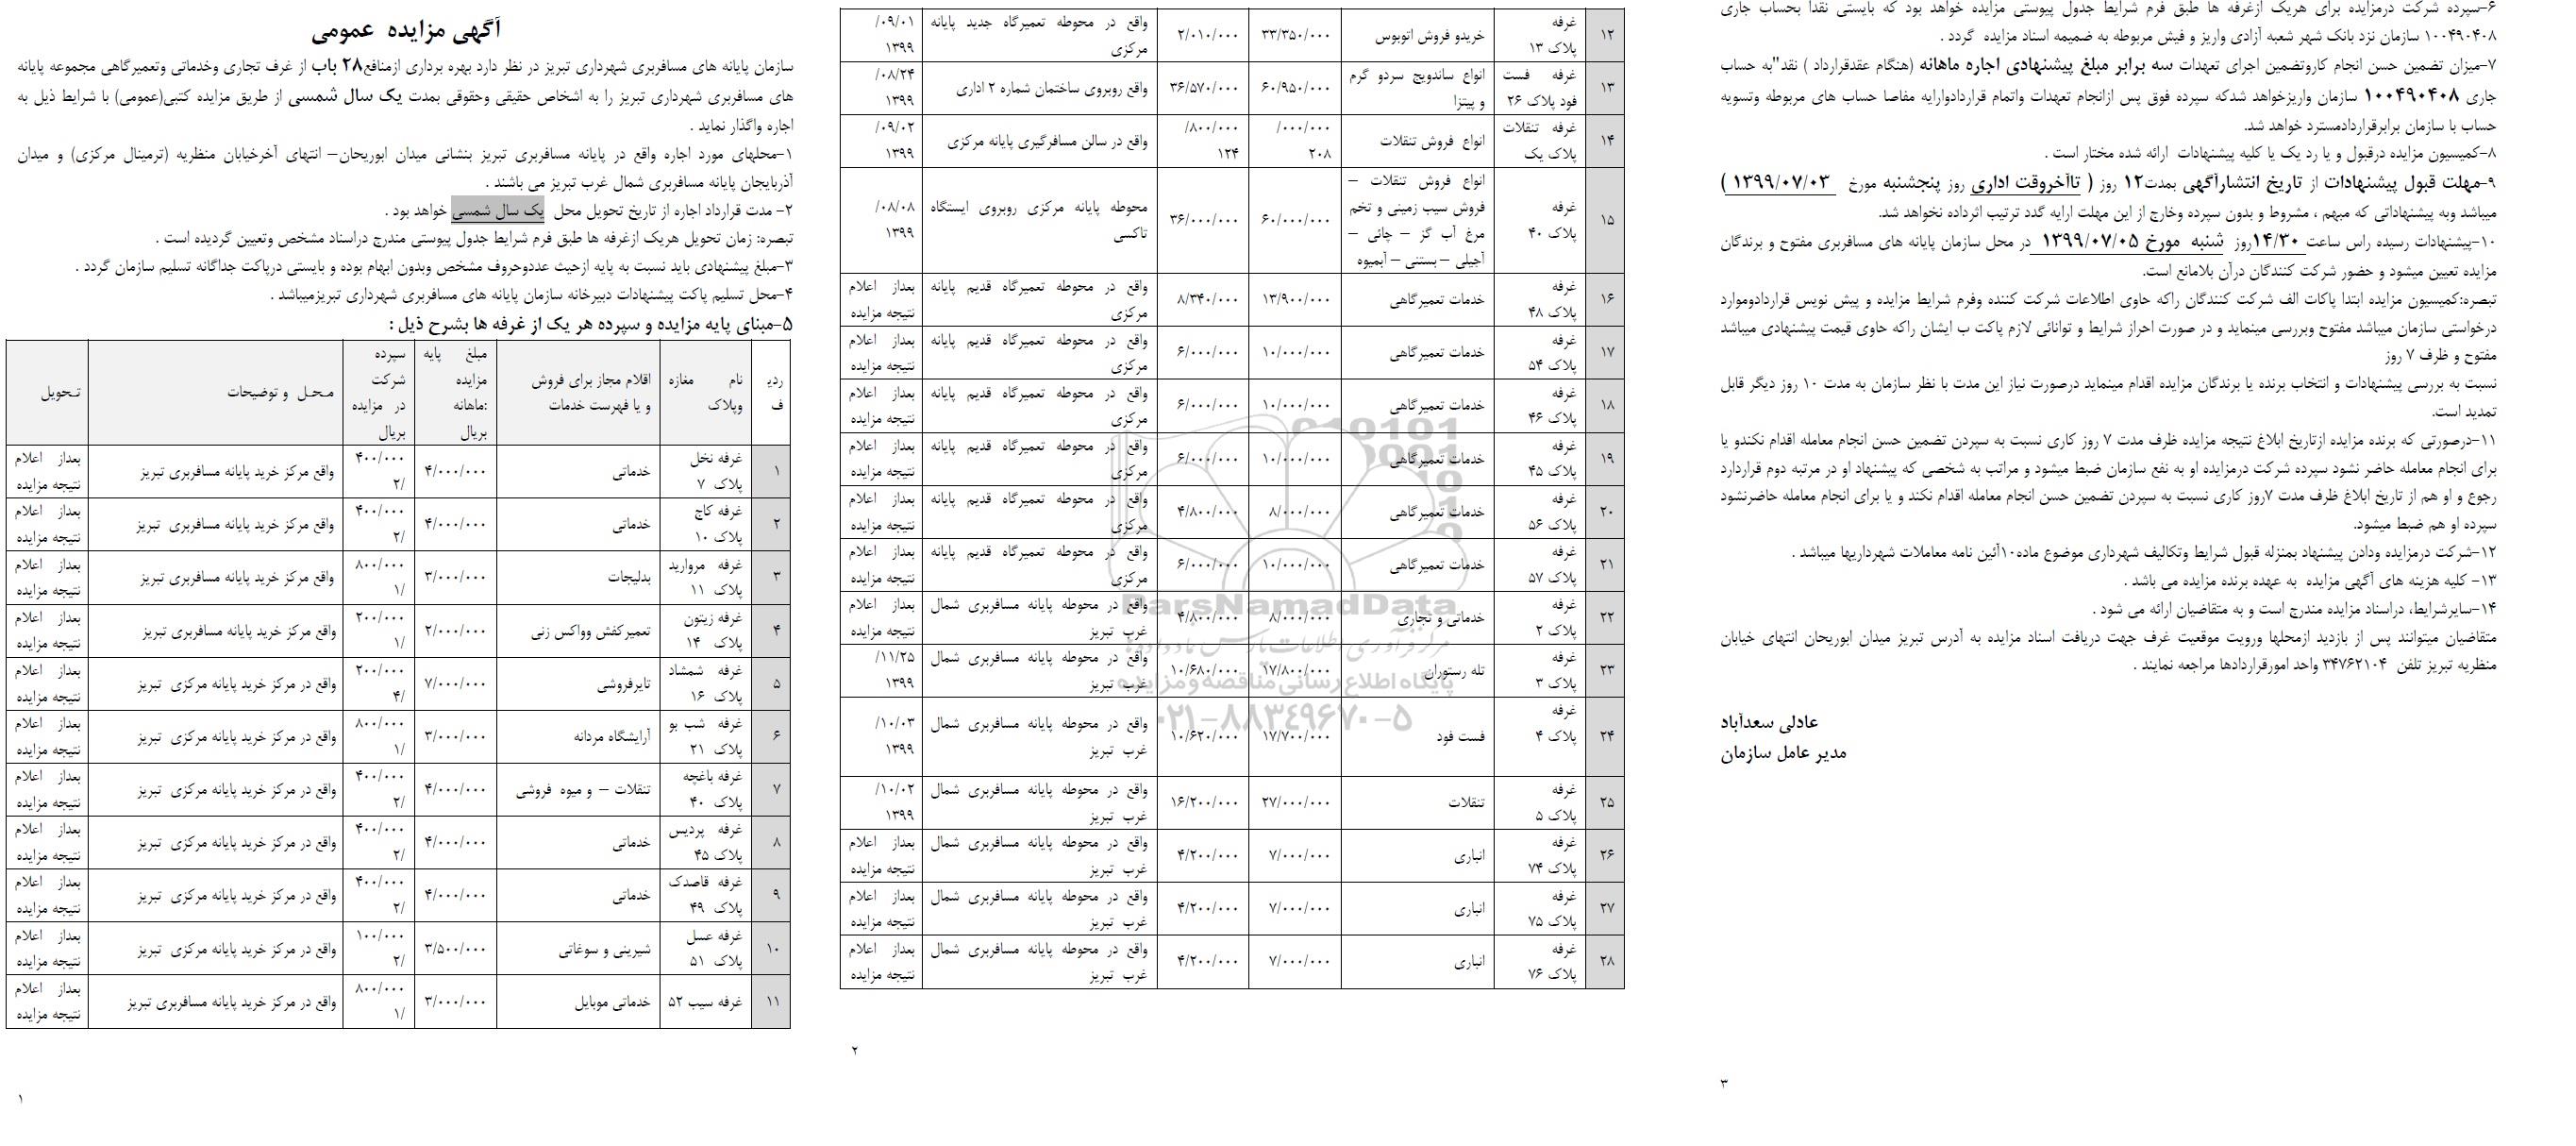 آگهی مزایده عمومی
سازمان پایانه های مسافربری شهرداری تبریز در نظر دارد بهره برداری ازمنافع۲۸ باب از غرف تجاری وخدماتی وتعمیرگاهی مجموعه پایانه
های مسافربری شهرداری تبریز را به اشخاص حقیقی وحقوقی بمدت یک سال شمسی از طریق مزایده کتبی(عمومی) با شرایط ذیل به
اجاره واگذار نماید .
۱-محلهای مورد اجاره واقع در پایانه مسافربری تبریز بنشانی میدان ابوریحان– انتهای آخرخیابان منظریه (ترمینال مرکزی) و میدان
آذربایجان پایانه مسافربری شمال غرب تبریز می باشند .
۲- مدت قرارداد اجاره از تاریخ تحویل محل یک سال شمسی خواهد بود .
تبصره: زمان تحویل هریک ازغرفه ها طبق فرم شرایط جدول پیوستی مندرج دراسناد مشخص وتعیین گردیده است .
۳-مبلغ پیشنهادی باید نسبت به پایه ازحیث عددوحروف مشخص وبدون ابهام بوده و بایستی درپاکت جداگانه تسلیم سازمان گردد .
۴-محل تسلیم پاکت پیشنهادات دبیرخانه سازمان پایانه های مسافربری شهرداری تبریزمیباشد .
۵-مبنای پایه مزایده و سپرده هر یک از غرفه ها بشرح ذیل :
ردیف | نام مغازه وپلاک | اقلام مجاز برای فروش و یا فهرست خدمات | مبلغ پایه مزایده :ماهانه بریال | سپرده شرکت در مزایده بریال | محل و توضیحات | تحویل
۱ | غرفه نخل پلاک ۷ | خدماتی | ۴/۰۰۰/۰۰۰ | ۴۰۰/۰۰۰ /۲ | واقع مرکز خرید پایانه مسافربری تبریز | بعداز اعلام نتیجه مزایده
۲ | غرفه کاج پلاک ۱۰ | خدماتی | ۴/۰۰۰/۰۰۰ | ۴۰۰/۰۰۰ /۲ | واقع مرکز خرید پایانه مسافربری تبریز | بعداز اعلام نتیجه مزایده
۳ | غرفه مروارید پلاک ۱۱ | بدلیجات | ۳/۰۰۰/۰۰۰ | ۸۰۰/۰۰۰ /۱ | واقع مرکز خرید پایانه مسافربری تبریز | بعداز اعلام نتیجه مزایده
۴ | غرفه زیتون پلاک ۱۴ | تعمیرکفش وواکس زنی | ۲/۰۰۰/۰۰۰ | ۲۰۰/۰۰۰ /۱ | واقع مرکز خرید پایانه مسافربری تبریز | بعداز اعلام نتیجه مزایده
۵ | غرفه شمشاد پلاک ۱۶ | تایرفروشی | ۷/۰۰۰/۰۰۰ | ۲۰۰/۰۰۰ /۴ | واقع در مرکز خرید پایانه مرکزی تبریز | بعداز اعلام نتیجه مزایده
۶ | غرفه شب بو پلاک ۲۱ | آرایشگاه مردانه | ۳/۰۰۰/۰۰۰ | ۸۰۰/۰۰۰ /۱ | واقع در مرکز خرید پایانه مرکزی تبریز | بعداز اعلام نتیجه مزایده
۷ | غرفه باغچه پلاک ۴۰ | تنقلات – و میوه فروشی | ۴/۰۰۰/۰۰۰ | ۴۰۰/۰۰۰ /۲ | واقع در مرکز خرید پایانه مرکزی تبریز | بعداز اعلام نتیجه مزایده
۸ | غرفه پردیس پلاک ۴۵ | خدماتی | ۴/۰۰۰/۰۰۰ | ۴۰۰/۰۰۰ /۲ | واقع در مرکز خرید پایانه مرکزی تبریز | بعداز اعلام نتیجه مزایده
۹ | غرفه قاصدک پلاک ۴۹ | خدماتی | ۴/۰۰۰/۰۰۰ | ۴۰۰/۰۰۰ /۲ | واقع در مرکز خرید پایانه مرکزی تبریز | بعداز اعلام نتیجه مزایده
۱۰ | غرفه عسل پلاک ۵۱ | شیرینی و سوغاتی | ۳/۵۰۰/۰۰۰ | ۱۰۰/۰۰۰ /۲ | واقع در مرکز خرید پایانه مرکزی تبریز | بعداز اعلام نتیجه مزایده
۱۱ | غرفه سیب ۵۲ | خدماتی موبایل | ۳/۰۰۰/۰۰۰ | ۸۰۰/۰۰۰ /۱ | واقع در مرکز خرید پایانه مسافربری تبریز | بعداز اعلام نتیجه مزایده
۱
۱۲ | غرفه پلاک ۱۳ | خریدو فروش اتوبوس | ۳۳/۳۵۰/۰۰۰ | ۲/۰۱۰/۰۰۰ | واقع در محوطه تعمیرگاه جدید پایانه مرکزی | /۰۹/۰۱ ۱۳۹۹
۱۳ | غرفه فست فود پلاک ۲۶ | انواع ساندویج سردو گرم و پیتزا | ۶۰/۹۵۰/۰۰۰ | ۳۶/۵۷۰/۰۰۰ | واقع روبروی ساختمان شماره ۲ اداری | /۰۸/۲۴ ۱۳۹۹
۱۴ | غرفه تنقلات پلاک یک | انواع فروش تنقلات | /۰۰۰/۰۰۰ ۲۰۸ | /۸۰۰/۰۰۰ ۱۲۴ | واقع در سالن مسافرگیری پایانه مرکزی | /۰۹/۰۲ ۱۳۹۹
۱۵ | غرفه پلاک ۴۰ | انواع فروش تنقلات – فروش سیب زمینی و تخم مرغ آب گز – چائی – آجیلی – بستنی – آبمیوه | ۶۰/۰۰۰/۰۰۰ | ۳۶/۰۰۰/۰۰۰ | محوطه پایانه مرکزی روبروی ایستگاه تاکسی | /۰۸/۰۸ ۱۳۹۹
۱۶ | غرفه پلاک ۴۸ | خدمات تعمیرگاهی | ۱۳/۹۰۰/۰۰۰ | ۸/۳۴۰/۰۰۰ | واقع در محوطه تعمیرگاه قدیم پایانه مرکزی | بعداز اعلام نتیجه مزایده
۱۷ | غرفه پلاک ۵۴ | خدمات تعمیرگاهی | ۱۰/۰۰۰/۰۰۰ | ۶/۰۰۰/۰۰۰ | واقع در محوطه تعمیرگاه قدیم پایانه مرکزی | بعداز اعلام نتیجه مزایده
۱۸ | غرفه پلاک ۴۶ | خدمات تعمیرگاهی | ۱۰/۰۰۰/۰۰۰ | ۶/۰۰۰/۰۰۰ | واقع در محوطه تعمیرگاه قدیم پایانه مرکزی | بعداز اعلام نتیجه مزایده
۱۹ | غرفه پلاک ۴۵ | خدمات تعمیرگاهی | ۱۰/۰۰۰/۰۰۰ | ۶/۰۰۰/۰۰۰ | واقع در محوطه تعمیرگاه قدیم پایانه مرکزی | بعداز اعلام نتیجه مزایده
۲۰ | غرفه پلاک ۵۶ | خدمات تعمیرگاهی | ۸/۰۰۰/۰۰۰ | ۴/۸۰۰/۰۰۰ | واقع در محوطه تعمیرگاه قدیم پایانه مرکزی | بعداز اعلام نتیجه مزایده
۲۱ | غرفه پلاک ۵۷ | خدمات تعمیرگاهی | ۱۰/۰۰۰/۰۰۰ | ۶/۰۰۰/۰۰۰ | واقع در محوطه تعمیرگاه قدیم پایانه مرکزی | بعداز اعلام نتیجه مزایده
۲۲ | غرفه پلاک ۲ | خدماتی و تجاری | ۸/۰۰۰/۰۰۰ | ۴/۸۰۰/۰۰۰ | واقع در محوطه پایانه مسافربری شمال غرب تبریز | بعداز اعلام نتیجه مزایده
۲۳ | غرفه پلاک ۳ | تله رستوران | ۱۷/۸۰۰/۰۰۰ | ۱۰/۶۸۰/۰۰۰ | واقع در محوطه پایانه مسافربری شمال غرب تبریز | /۱۱/۲۵ ۱۳۹۹
۲۴ | غرفه پلاک ۴ | فست فود | ۱۷/۷۰۰/۰۰۰ | ۱۰/۶۲۰/۰۰۰ | واقع در محوطه پایانه مسافربری شمال غرب تبریز | /۱۰/۰۳ ۱۳۹۹
۲۵ | غرفه پلاک ۵ | تنقلات | ۲۷/۰۰۰/۰۰۰ | ۱۶/۲۰۰/۰۰۰ | واقع در محوطه پایانه مسافربری شمال غرب تبریز | /۱۰/۰۲ ۱۳۹۹
۲۶ | غرفه پلاک ۷۴ | انباری | ۷/۰۰۰/۰۰۰ | ۴/۲۰۰/۰۰۰ | واقع در محوطه پایانه مسافربری شمال غرب تبریز | بعداز اعلام نتیجه مزایده
۲۷ | غرفه پلاک ۷۵ | انباری | ۷/۰۰۰/۰۰۰ | ۴/۲۰۰/۰۰۰ | واقع در محوطه پایانه مسافربری شمال غرب تبریز | بعداز اعلام نتیجه مزایده
۲۸ | غرفه پلاک ۷۶ | انباری | ۷/۰۰۰/۰۰۰ | ۴/۲۰۰/۰۰۰ | واقع در محوطه پایانه مسافربری شمال غرب تبریز | بعداز اعلام نتیجه مزایده
ParsNamadData
پایگاه اطلاع رسانی مناقصه و مزایده
۰۲۱-۸۸۳۴۹۶۷۰-۵
۲
۶-سپرده شرکت درمزایده برای هریک ازغرفه ها طبق فرم شرایط جدول پیوستی مزایده خواهد بود که بایستی نقدا بحساب جاری
۱۰۰۴۹۰۴۰۸ سازمان نزد بانک شهر شعبه آزادی واریز و فیش مربوطه به ضمیمه اسناد مزایده گردد .
۷-میزان تضمین حسن انجام کاروتضمین اجرای تعهدات سه برابر مبلغ پیشنهادی اجاره ماهانه (هنگام عقدقرارداد ) نقد"به حساب
جاری ۱۰۰۴۹۰۴۰۸ سازمان واریزخواهد شدکه سپرده فوق پس ازانجام تعهدات واتمام قراردادوارایه مفاصا حساب های مربوطه وتسویه
حساب با سازمان برابرقراردادمسترد خواهد شد.
۸-کمیسیون مزایده درقبول و یا رد یک یا کلیه پیشنهادات ارائه شده مختار است .
۹-مهلت قبول پیشنهادات از تاریخ انتشارآگهی بمدت۱۲ روز ( تاآخروقت اداری روز پنجشنبه مورخ ۱۳۹۹/۰۷/۰۳ )
میباشد وبه پیشنهاداتی که مبهم ، مشروط و بدون سپرده وخارج از این مهلت ارایه گدد ترتیب اثرداده نخواهد شد.
۱۰-پیشنهادات رسیده راس ساعت ۱۴/۳۰روز شنبه مورخ ۱۳۹۹/۰۷/۰۵ در محل سازمان پایانه های مسافربری مفتوح و برندگان
مزایده تعیین میشود و حضور شرکت کنندگان درآن بلامانع است.
تبصره:کمیسیون مزایده ابتدا پاکات الف شرکت کنندگان راکه حاوی اطلاعات شرکت کننده وفرم شرایط مزایده و پیش نویس قراردادوموارد
درخواستی سازمان میباشد مفتوح وبررسی مینماید و در صورت احراز شرایط و توانائی لازم پاکت ب ایشان راکه حاوی قیمت پیشنهادی میباشد
مفتوح و ظرف ۷ روز
نسبت به بررسی پیشنهادات و انتخاب برنده یا برندگان مزایده اقدام مینماید درصورت نیاز این مدت با نظر سازمان به مدت ۱۰ روز دیگر قابل
تمدید است.
۱۱-درصورتی که برنده مزایده ازتاریخ ابلاغ نتیجه مزایده ظرف مدت ۷ روز کاری نسبت به سپردن تضمین حسن انجام معامله اقدام نکندو یا
برای انجام معامله حاضر نشود سپرده شرکت درمزایده او به نفع سازمان ضبط میشود و مراتب به شخصی که پیشنهاد او در مرتبه دوم قراردارد
رجوع و او هم از تاریخ ابلاغ ظرف مدت ۷روز کاری نسبت به سپردن تضمین حسن انجام معامله اقدام نکند و یا برای انجام معامله حاضرنشود
سپرده او هم ضبط میشود.
۱۲-شرکت درمزایده ودادن پیشنهاد بمنزله قبول شرایط وتکالیف شهرداری موضوع ماده۱۰آئین نامه معاملات شهرداریها میباشد .
۱۳- کلیه هزینه های آگهی مزایده به عهده برنده مزایده می باشد .
۱۴-سایرشرایط، دراسناد مزایده مندرج است و به متقاضیان ارائه می شود .
متقاضیان میتوانند پس از بازدید ازمحلها ورویت موقعیت غرف جهت دریافت اسناد مزایده به آدرس تبریز میدان ابوریحان انتهای خیابان
منظریه تبریز تلفن ۳۴۷۶۲۱۰۴ واحد امورقراردادها مراجعه نمایند .
عادلی سعدآباد
مدیر عامل سازمان
۳